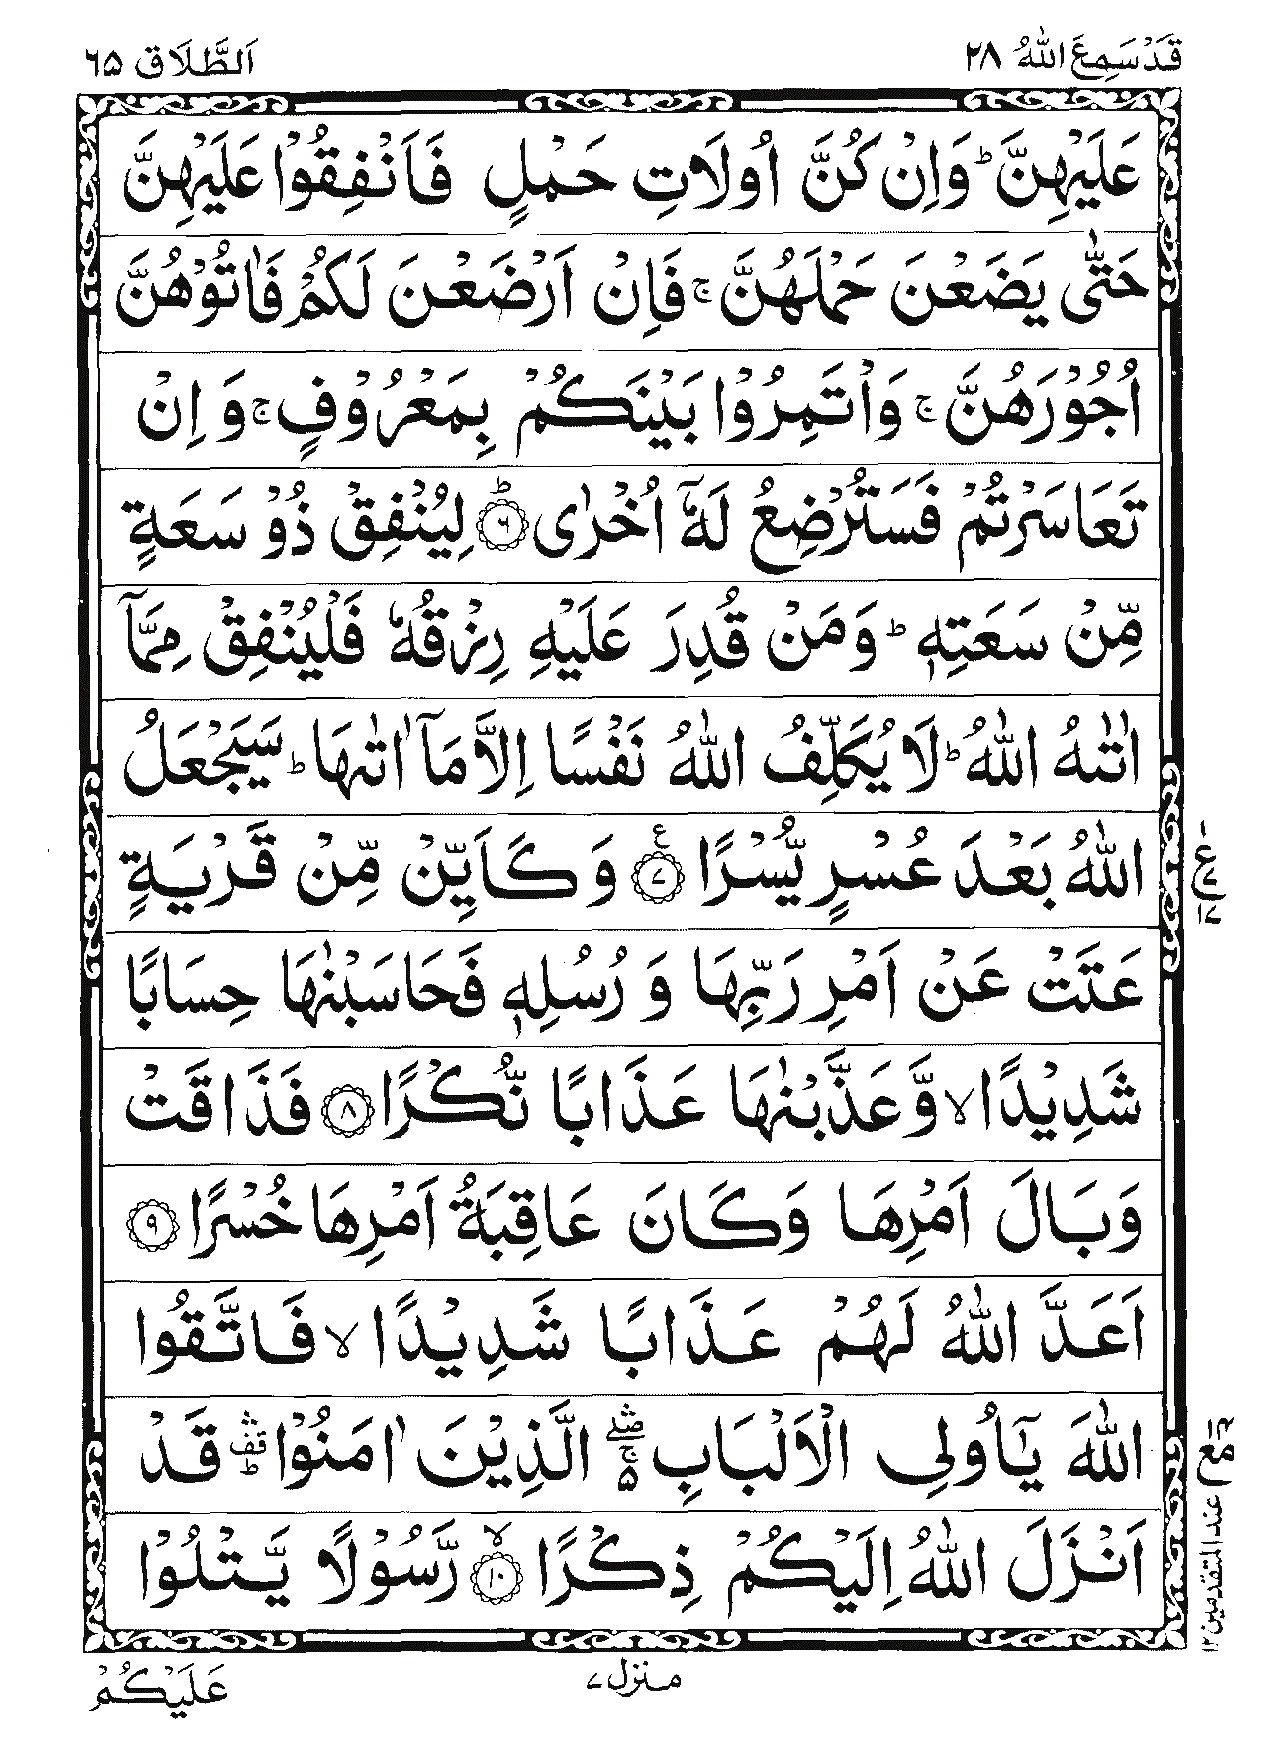 قَدْ سَمِعَ اللّٰهُ ٢٨
اَلطَّلَاق ٦٥
عَلَيْهِنَّ ؕ وَاِنْ كُنَّ اُولَاتِ حَمْلٍ فَاَنْفِقُوْا عَلَيْهِنَّ
حَتّٰى يَضَعْنَ حَمْلَهُنَّ ۚ فَاِنْ اَرْضَعْنَ لَكُمْ فَاٰتُوْهُنَّ
اُجُوْرَهُنَّ ۚ وَاْتَمِرُوْا بَيْنَكُمْ بِمَعْرُوْفٍ ۚ وَ اِنْ
تَعَاسَرْتُمْ فَسَتُرْضِعُ لَهٗۤ اُخْرٰى ؕ ۝٦ لِيُنْفِقْ ذُوْ سَعَةٍ
مِّنْ سَعَتِهٖ ؕ وَمَنْ قُدِرَ عَلَيْهِ رِزْقُهٗ فَلْيُنْفِقْ مِمَّاۤ
اٰتٰىهُ اللّٰهُ ؕ لَا يُكَلِّفُ اللّٰهُ نَفْسًا اِلَّا مَاۤ اٰتٰىهَا ؕ سَيَجْعَلُ
اللّٰهُ بَعْدَ عُسْرٍ يُّسْرًا ۝٧ ع وَ كَاَيِّنْ مِّنْ قَرْيَةٍ
عَتَتْ عَنْ اَمْرِ رَبِّهَا وَ رُسُلِهٖ فَحَاسَبْنٰهَا حِسَابًا
شَدِيْدًا ۙ وَّعَذَّبْنٰهَا عَذَابًا نُّكْرًا ۝٨ فَذَاقَتْ
وَبَالَ اَمْرِهَا وَكَانَ عَاقِبَةُ اَمْرِهَا خُسْرًا ۝٩
اَعَدَّ اللّٰهُ لَهُمْ عَذَابًا شَدِيْدًا ۙ فَاتَّقُوا
اللّٰهَ يٰۤاُولِى الْاَلْبَابِ ۛۖۚ ۵ الَّذِيْنَ اٰمَنُوْا ۛ قف ؕ قَدْ
اَنْزَلَ اللّٰهُ اِلَيْكُمْ ذِكْرًا ۙ ۝١٠ رَّسُوْلًا يَّتْلُوْا
عَلَيْكُمْ
منزل ٧
ع ١٧
مع
عند المتقدمين ١٢